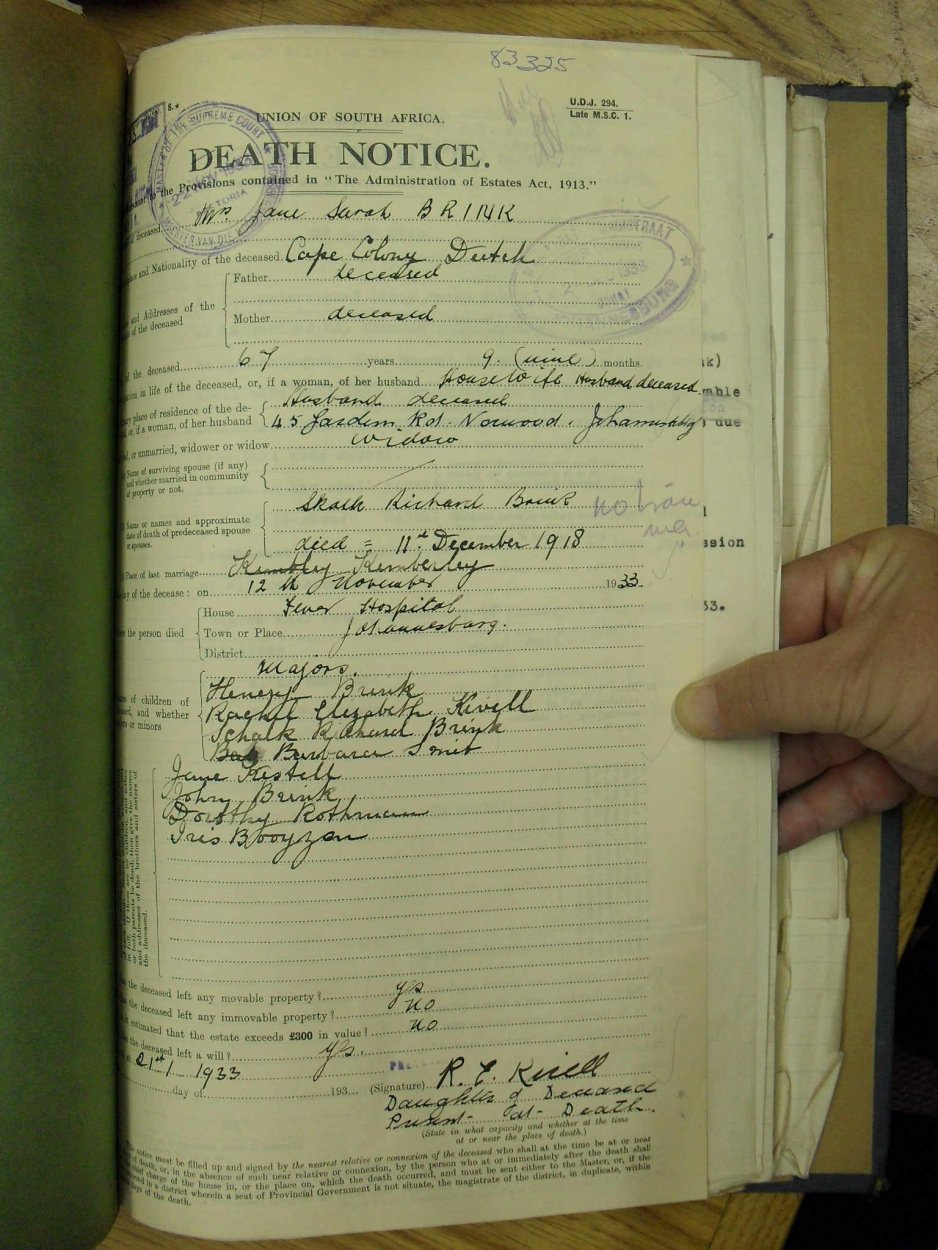 83325
S.*
U.D.J. 294.
Late M.S.C. 1.
UNION OF SOUTH AFRICA.
DEATH NOTICE.
the Provisions contained in "The Administration of Estates Act, 1913."
MASTER OF THE SUPREME COURT
22 NOV 1933
PRETORIA
Mrs. Jane Sarah BRINK
deceased
and Nationality of the deceased Cape Colony Dutch
Father deceased
and Addresses of the
of the deceased
Mother deceased
of the deceased 67 years 9. (nine) months.
in life of the deceased, or, if a woman, of her husband Housewife Husband deceased
place of residence of the de-
or, if a woman, of her husband
Husband deceased
45 Rd. Norwood. Johannesburg
or unmarried, widower or widow Widow
Name of surviving spouse (if any)
and whether married in community
of property or not.
Name or names and approximate
date of death of predeceased spouse
or spouses.
Skalk Richard Brink
died = 11th December 1918
Place of last marriage Kembley Kimberley
of the decease: on 12th November 1933
House Fever Hospital
the person died
Town or Place Johannesburg.
District
Majors.
of children of
and whether
or minors
Henery Brink
Rachel Elizabeth Kivell
Schalk Richard Brink
Barbara Smit
Jane Kestell
John Brink
Dorothy Rothmann
Iris Booyzen
or both parents be dead, then give the names
and addresses of the brothers and sisters of
the deceased.
the deceased left any movable property? yes
the deceased left any immovable property? no
estimated that the estate exceeds £300 in value? no
the deceased left a will? yes.
21st / 1933
day of 193 (Signature) R. E. Kivell
Daughter of Deceased
Present at Death.
(State in what capacity and whether at the time
at or near the place of death.)
notice must be filled up and signed by the nearest relative or connexion of the deceased who shall at the time be at or near
of death, or, in the absence of such near relative or connexion, by the person who at or immediately after the death shall
charge of the house in, or the place on, which the death occurred, and must be sent either to the Master, or, if the
in a district wherein a seat of Provincial Government is not situate, the magistrate of the district, in duplicate, within
days of the death.
k)
able
due
ssion
33.